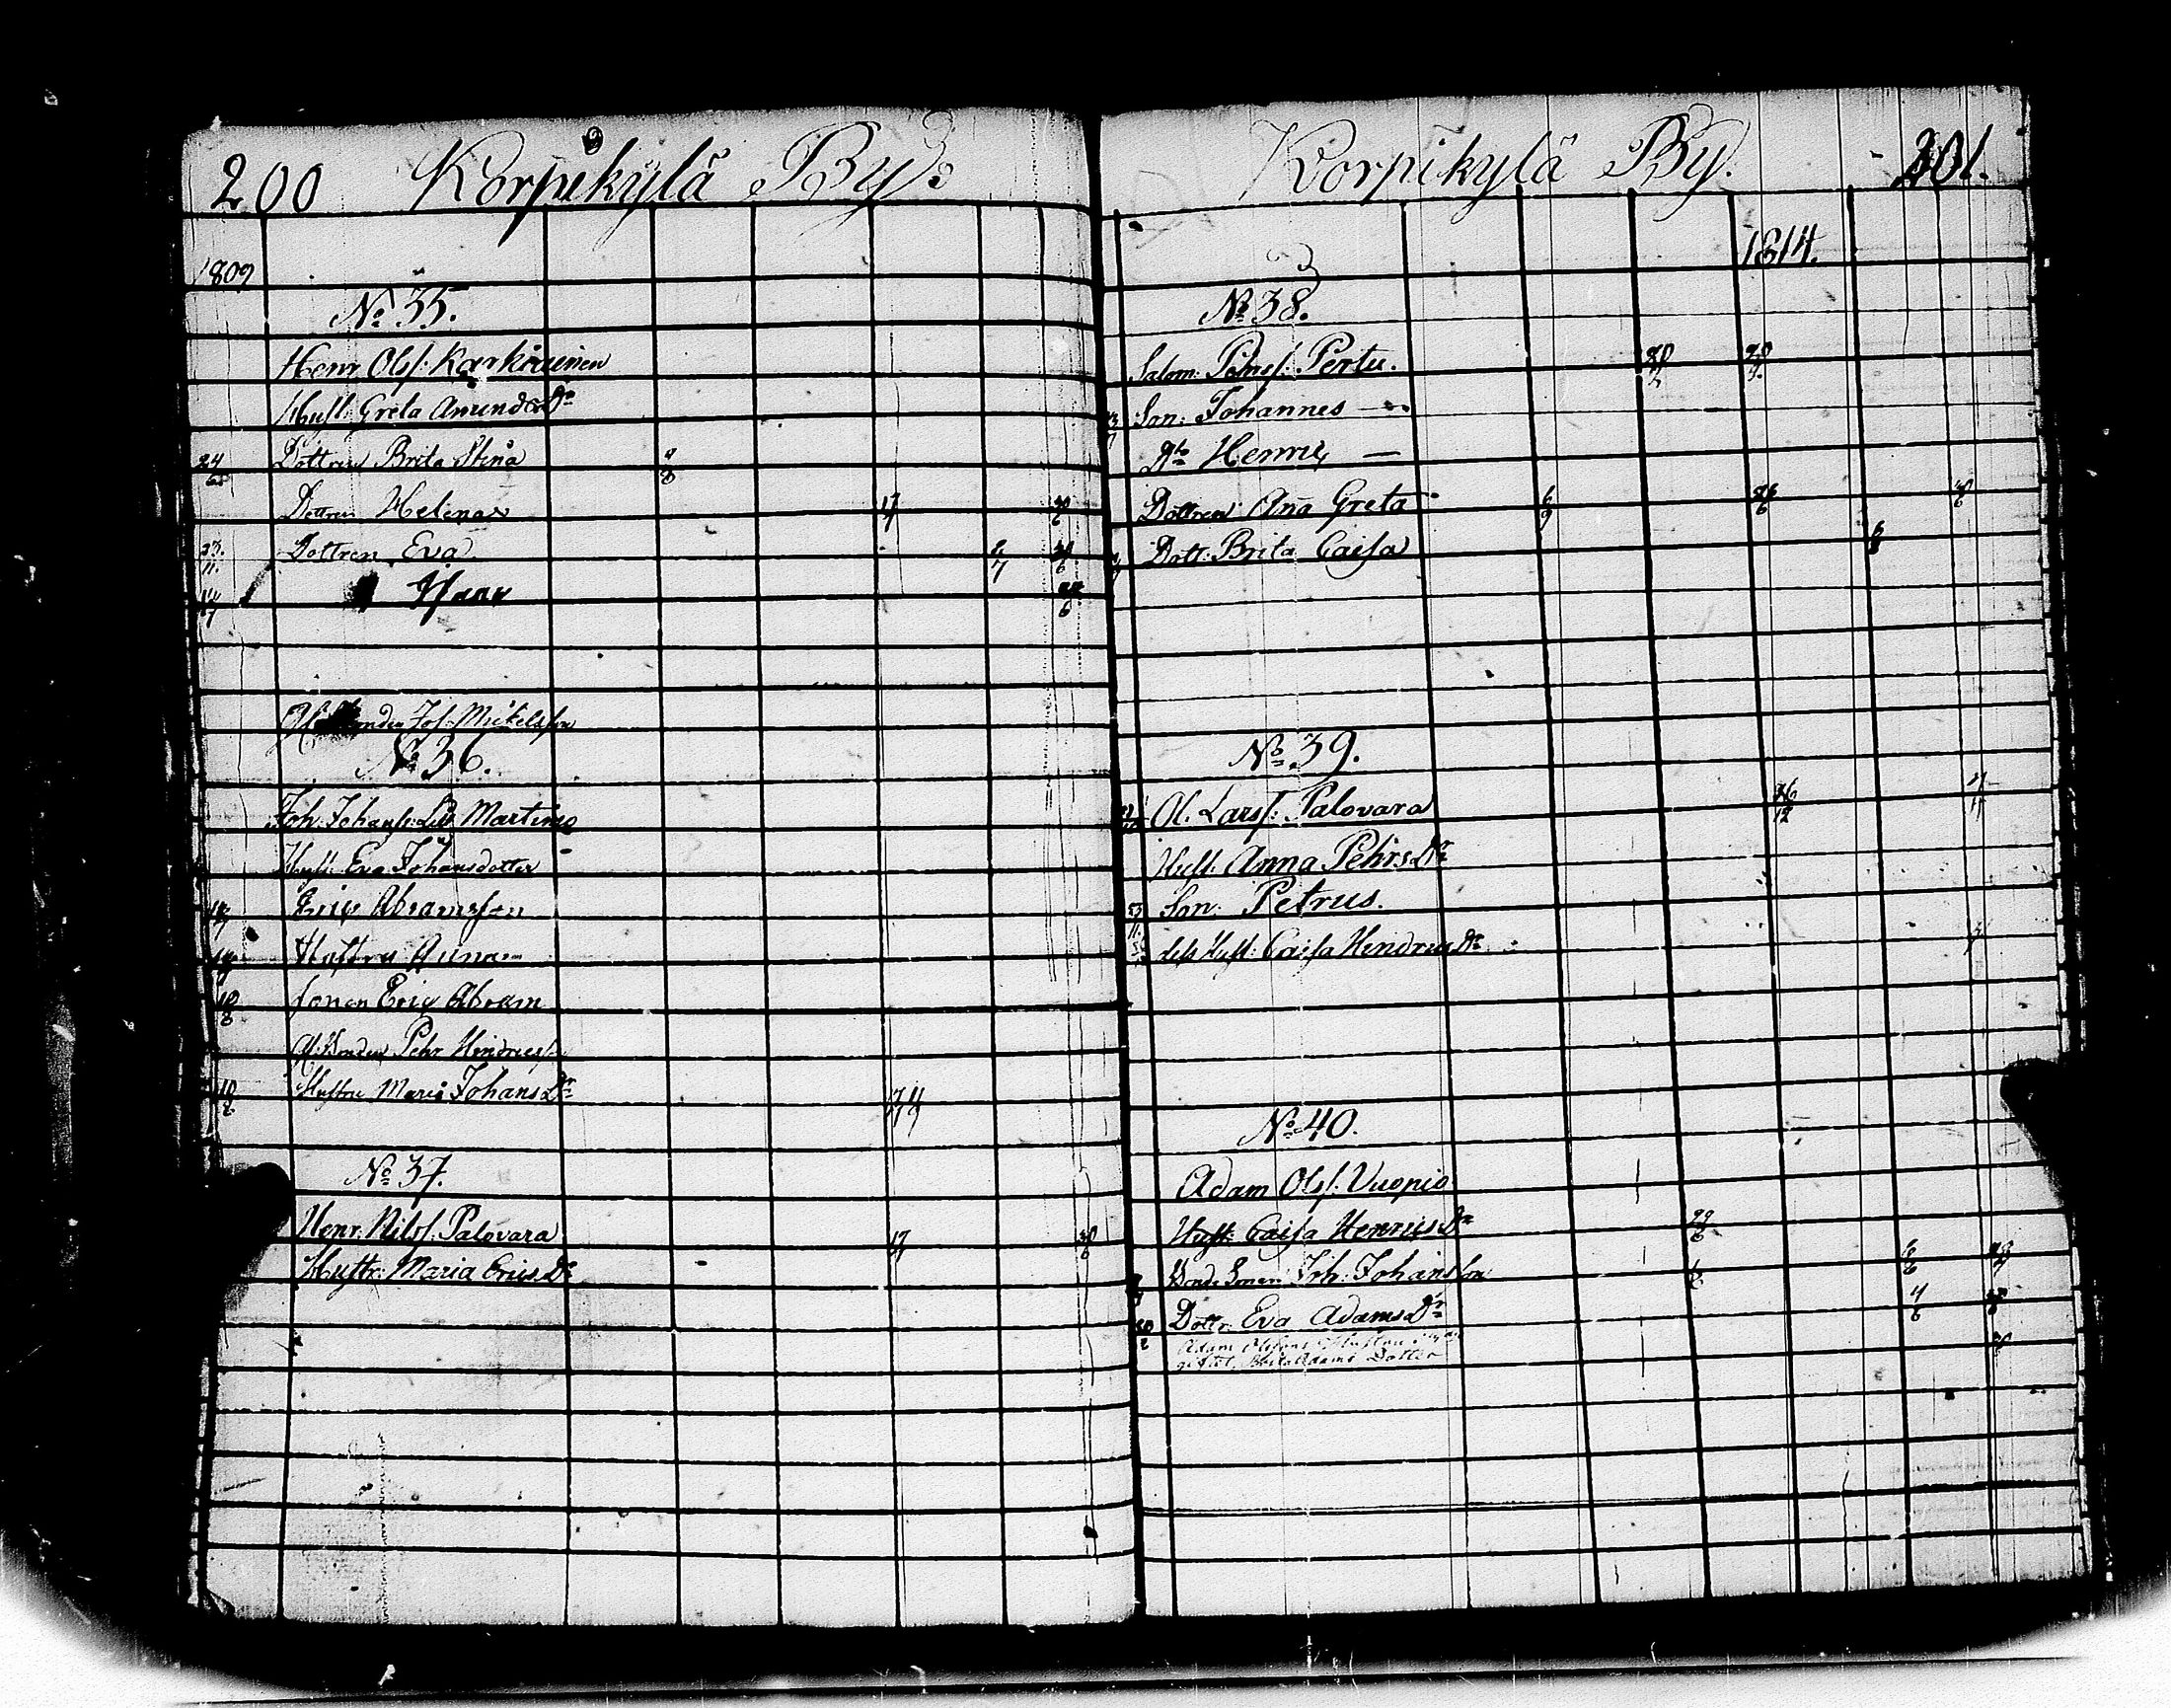 200 Korpikylä By.
1809
No 35.
Henr. Olsf: Karkiainen
Hust: Greta Amunds Dr
24/6 Dottren Brita Stina 9/8
Dottren Helena 17/4 30/6
23./11. Dottren Eva 2/7 30/6
14/7 6
Af Bonden Johs Mickelsson
No 36.
Joh: Johansf: Martimo
Hust: Eva Johansdotter
Eric Abramsson
Hustru
Sonen Eric Abram
Af Bonden Pehr Hendricsson
Hustru Maria Johans Dr
No 37.
Henr. Nilsf. Palovara 17/4 30/6
Hustr: Maria Erics Dr
Korpikylä By. 201.
1814.
No 38.
Salom: Pehrsf: Pertu.
Son: Johannes —
Do Henric —
Dottren Ana Greta 6/9
Dott: Brita Caisa 6/8
No 39.
Ol. Larsf: Palovara 26/12
Hust. Anna Pehrs Dr
Son: Petrus.
dess Hust: Caisa Hendrics Dr
No 40.
Adam Olsf: Vuopio
Hust: Caisa Henrics Dr 29/6
Bonde Sonen Joh: Johansson 6/6
Dottr. Eva Adams Dr 4/6
Adam Olssons Hustru
gift, Brita Adams Dotter